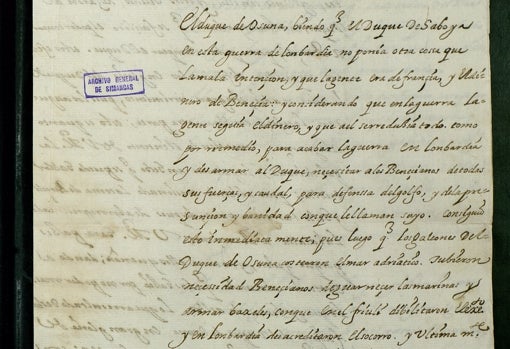 El duque de Osuna, biendo q̃. El Duque de Saboya
en esta guerra de lonbardia no ponia otra cosa que
la mala intençion, y que la gente era de françia, y el di-
nero de Beneçia: y considerando que en la guerra la
gente seguia el dinero, y que a el se rreduçia todo. tomo
por rremedio, para acabar la guerra en lonbardia
y desarmar al Duque, neçesitar a los Beneçianos de todas
sus fuerças, y caudal, para defenssa del golfo, y de la pre-
sunçion y banidad con que le llaman suyo. Consiguio
esto inmediata mente, pues luego q̃. los galeones del
Duque de Osuna entraron el mar adriatico. tubieron
neçesidad Beneçianos de guarneçer las marinas y
armar baxeles, con que en el friuli debilitaron el exto
y en lonbardia desacreditaron el socorro. y Ultima mte
ARCHIVO GENERAL
DE SIMANCAS